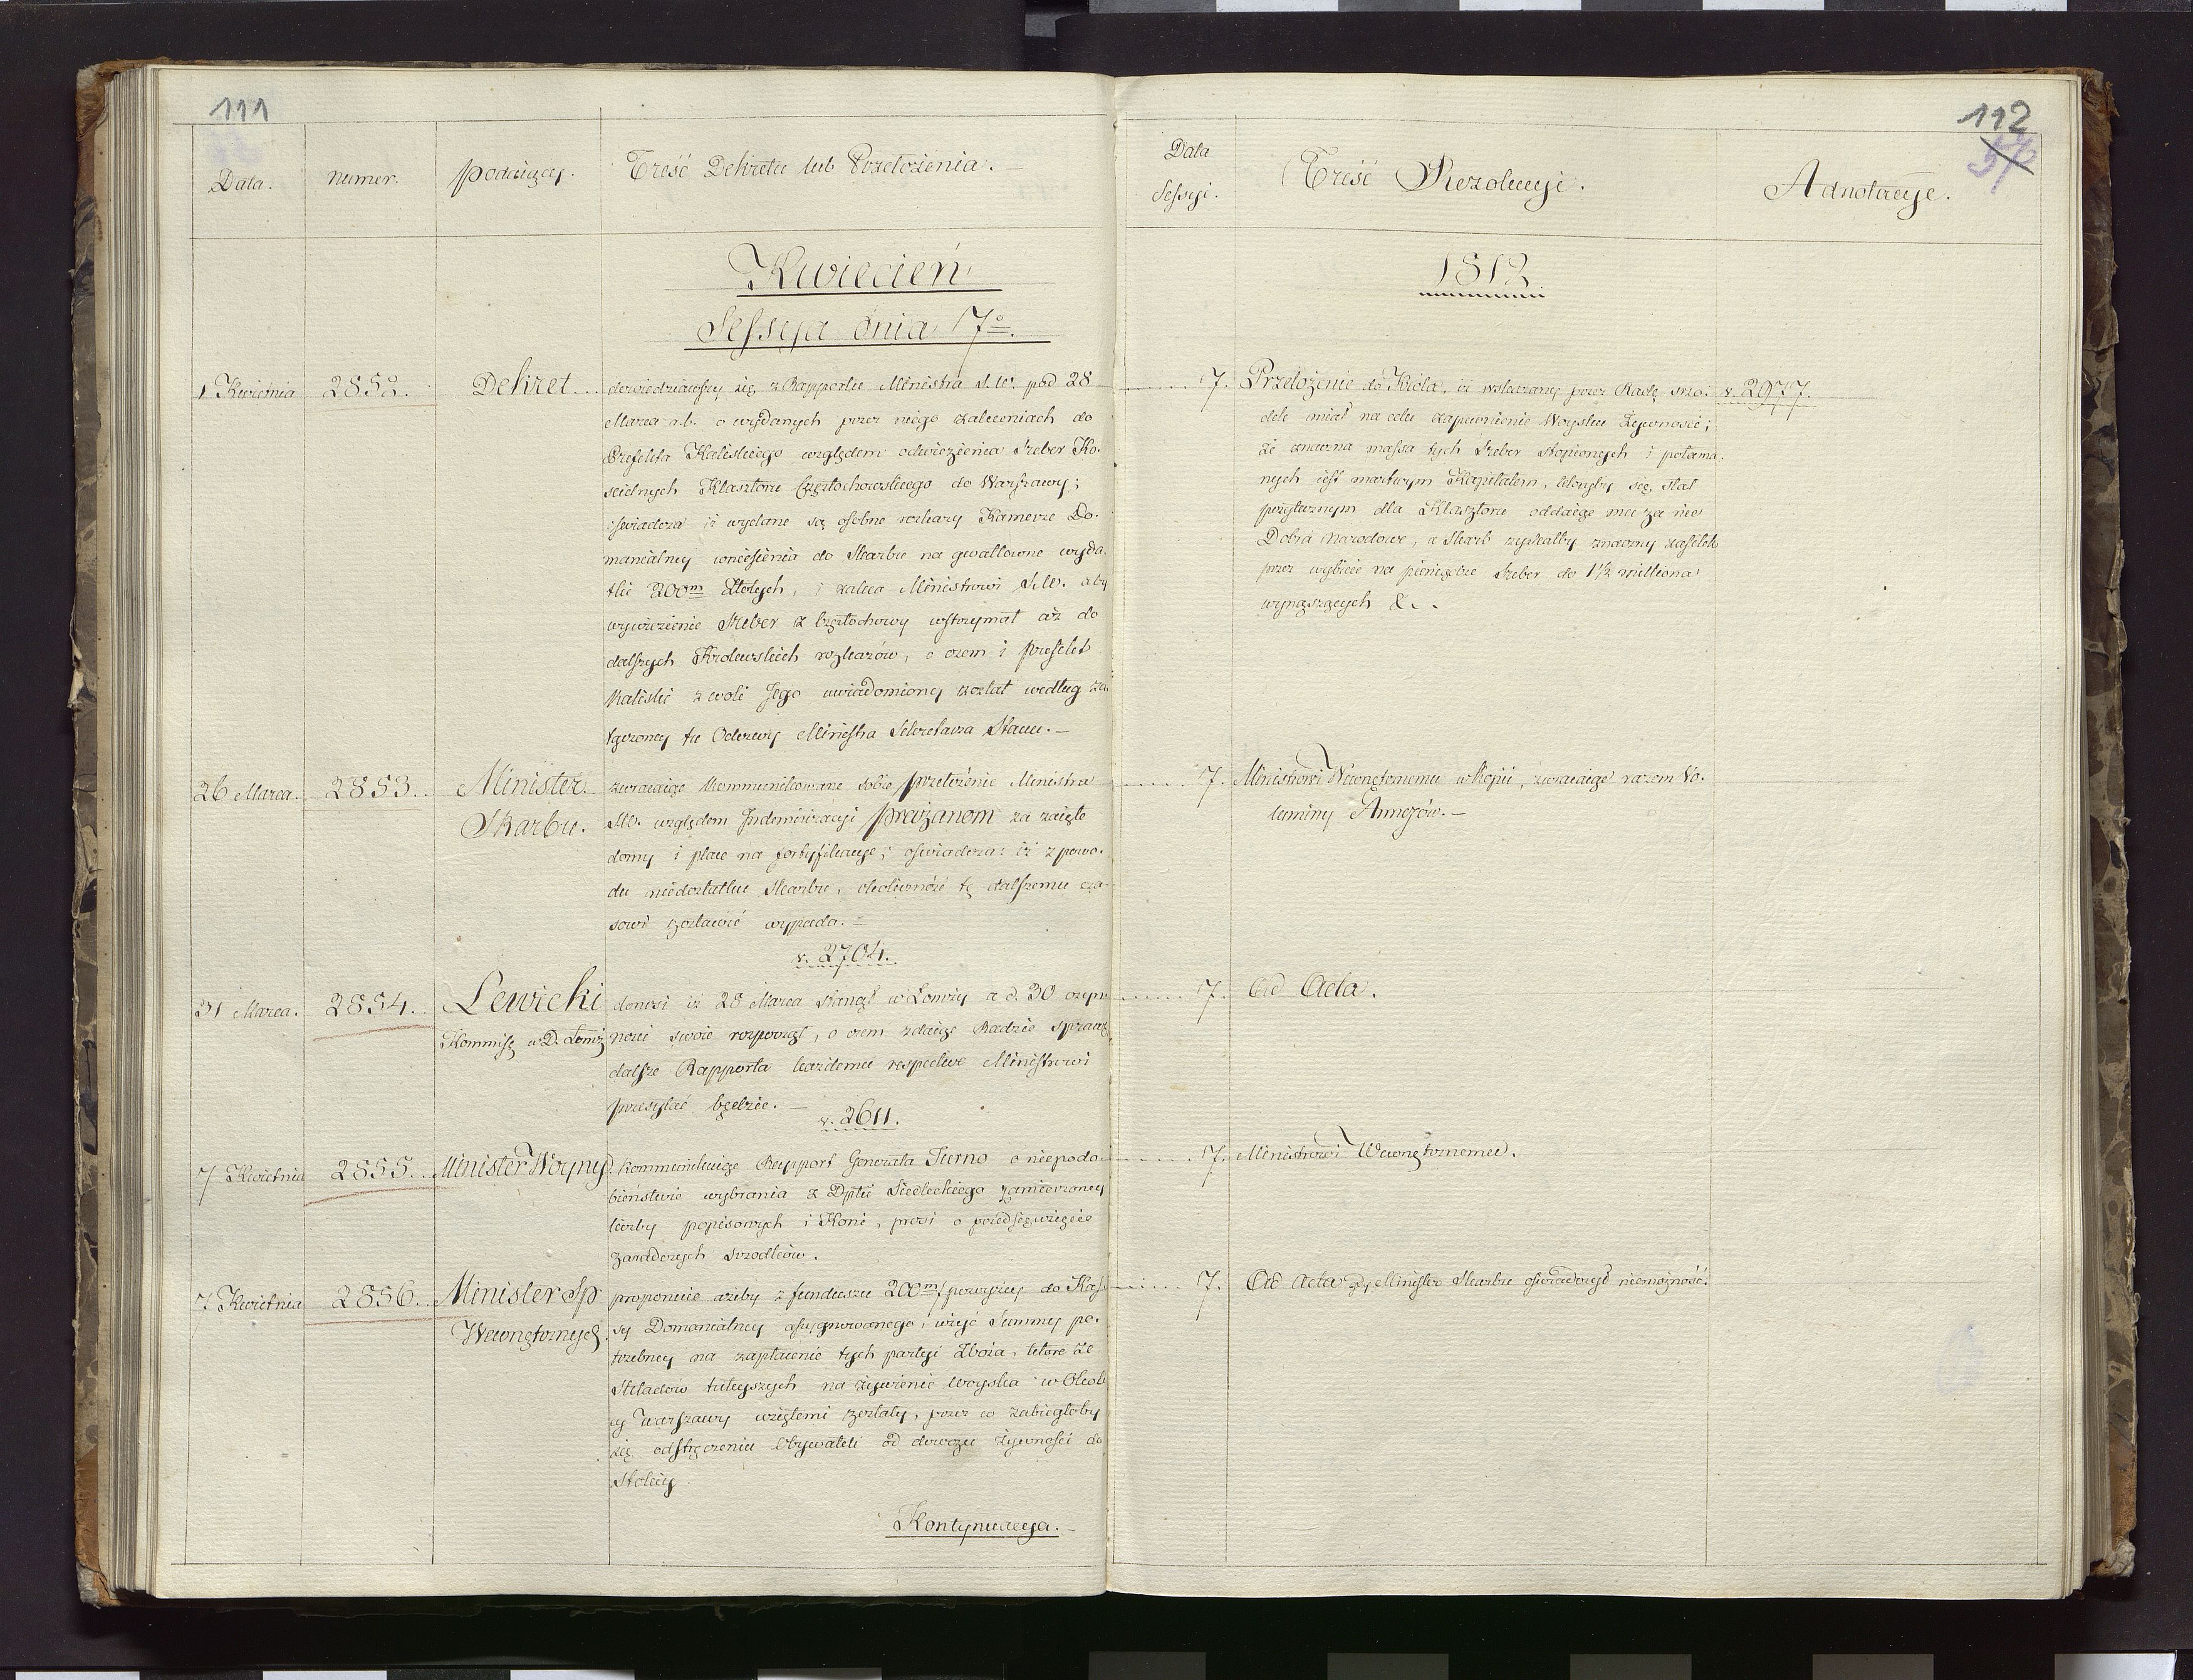 111
Data.
numer.
podaiący.
Treść Dekretu lub Przełożenia. —
Kwiecień
Sessya dnia 7º.
1 Kwietnia
2852.
Dekret
dowiedziawszy się, z Rapportu Ministra S.W. pod 28
Marca r.b. o wydanych przez niego zaleceniach do
Prefekta Kaliskiego względem odwiezienia Sreber Ko-
scielnych Klasztoru Częstochowskiego do Warszawy;
oswiadcza iż wydane są osobne rozkazy Kamerze Do-
manialney wniesienia do Skarbu na gwałtowne wyda-
tki 200m Złotych, i zaleca Ministrowi S.W. aby
wywiezienie Sreber z Częstochowy wstrzymał aż do
dalszych Krolewskich rozkazów, o czem i prefekt
Kaliski z woli Jego uwiadomiony został według za-
łączoney tu Odezwy Ministra Sekretarza Stanu. —
26 Marca.
2853.
Minister
Skarbu.
zwracaiąc kommunikowane sobie przełożenie Ministra
SW. względem Indemnizacyi prażanom za zaięte
domy i place na fortyfikacye; oswiadcza: iż z powo-
du niedostatku Skarbu, okoliczność tę dalszemu cza-
sowi zostawić wypada. —
v. 2704.
31 Marca.
2854.
Lewicki
Kommisę w D. Łomż
donosi iż 28 Marca stanął w Łomży a d. 30 czyn-
nowi swoie rozpoczął, o czem zdaiąc Radzie sprawę
dalsze Rapporta każdemu respective Ministrowi
przesyłać będzie. —
v. 2611.
7 Kwietnia
2855.
Minister Woyny
kommunikuiąc Rapport Generała Turno o niepodo-
bieństwie wybrania z Dpttu Siedleckiego zamierzoney
liczby popisowych i Koni, prosi o przedsięwzięcie
zaradczych srzodków.
7 Kwietnia
2856.
Minister Sp
Wewnętrznych.
proponuie ażeby z funduszu 200m/ powyżey do Kas-
sy Domanialney assygnowanego, użyć Summy po-
trzebney na zapłacenie tych partyi Zboża, które ze
Składów tuteyszych na żywienie woyska w Okoli-
cy Warszawy wziętemi zostały, przez co zabiegłoby
się odstręczeniu Obywateli od dowozu żywności do
Stolicy.
Kontynuacya. —
112
Data
Sessyi.
Treść Rezolucyi.
Adnotacye.
1812
7.
Przełożenie do Króla, iż wskazany przez Radę srzo-
dek miał na celu zapewnienie Woysku Żywność;
że znaczna massa tych Sreber stopionych i połama-
nych iest martwym Kapitałem, któryby się stał
pożytecznym dla Klasztoru oddaiąc mu za nie
Dobra Narodowe, a Skarb zyskałby znaczny zasiłek
przez wybicie na pieniądze Sreber do 1½ milliona
wynoszących &..
v. 2977.
7.
Ministrowi Wewnętrznemu w Kopii, zwracaiąc razem Vo-
luminy Annexów. —
7.
Ad Acta.
7.
Ministrowi Wewnętrznemu.
7.
Ad Acta gdy Minister Skarbu oswiadczył niemożność.